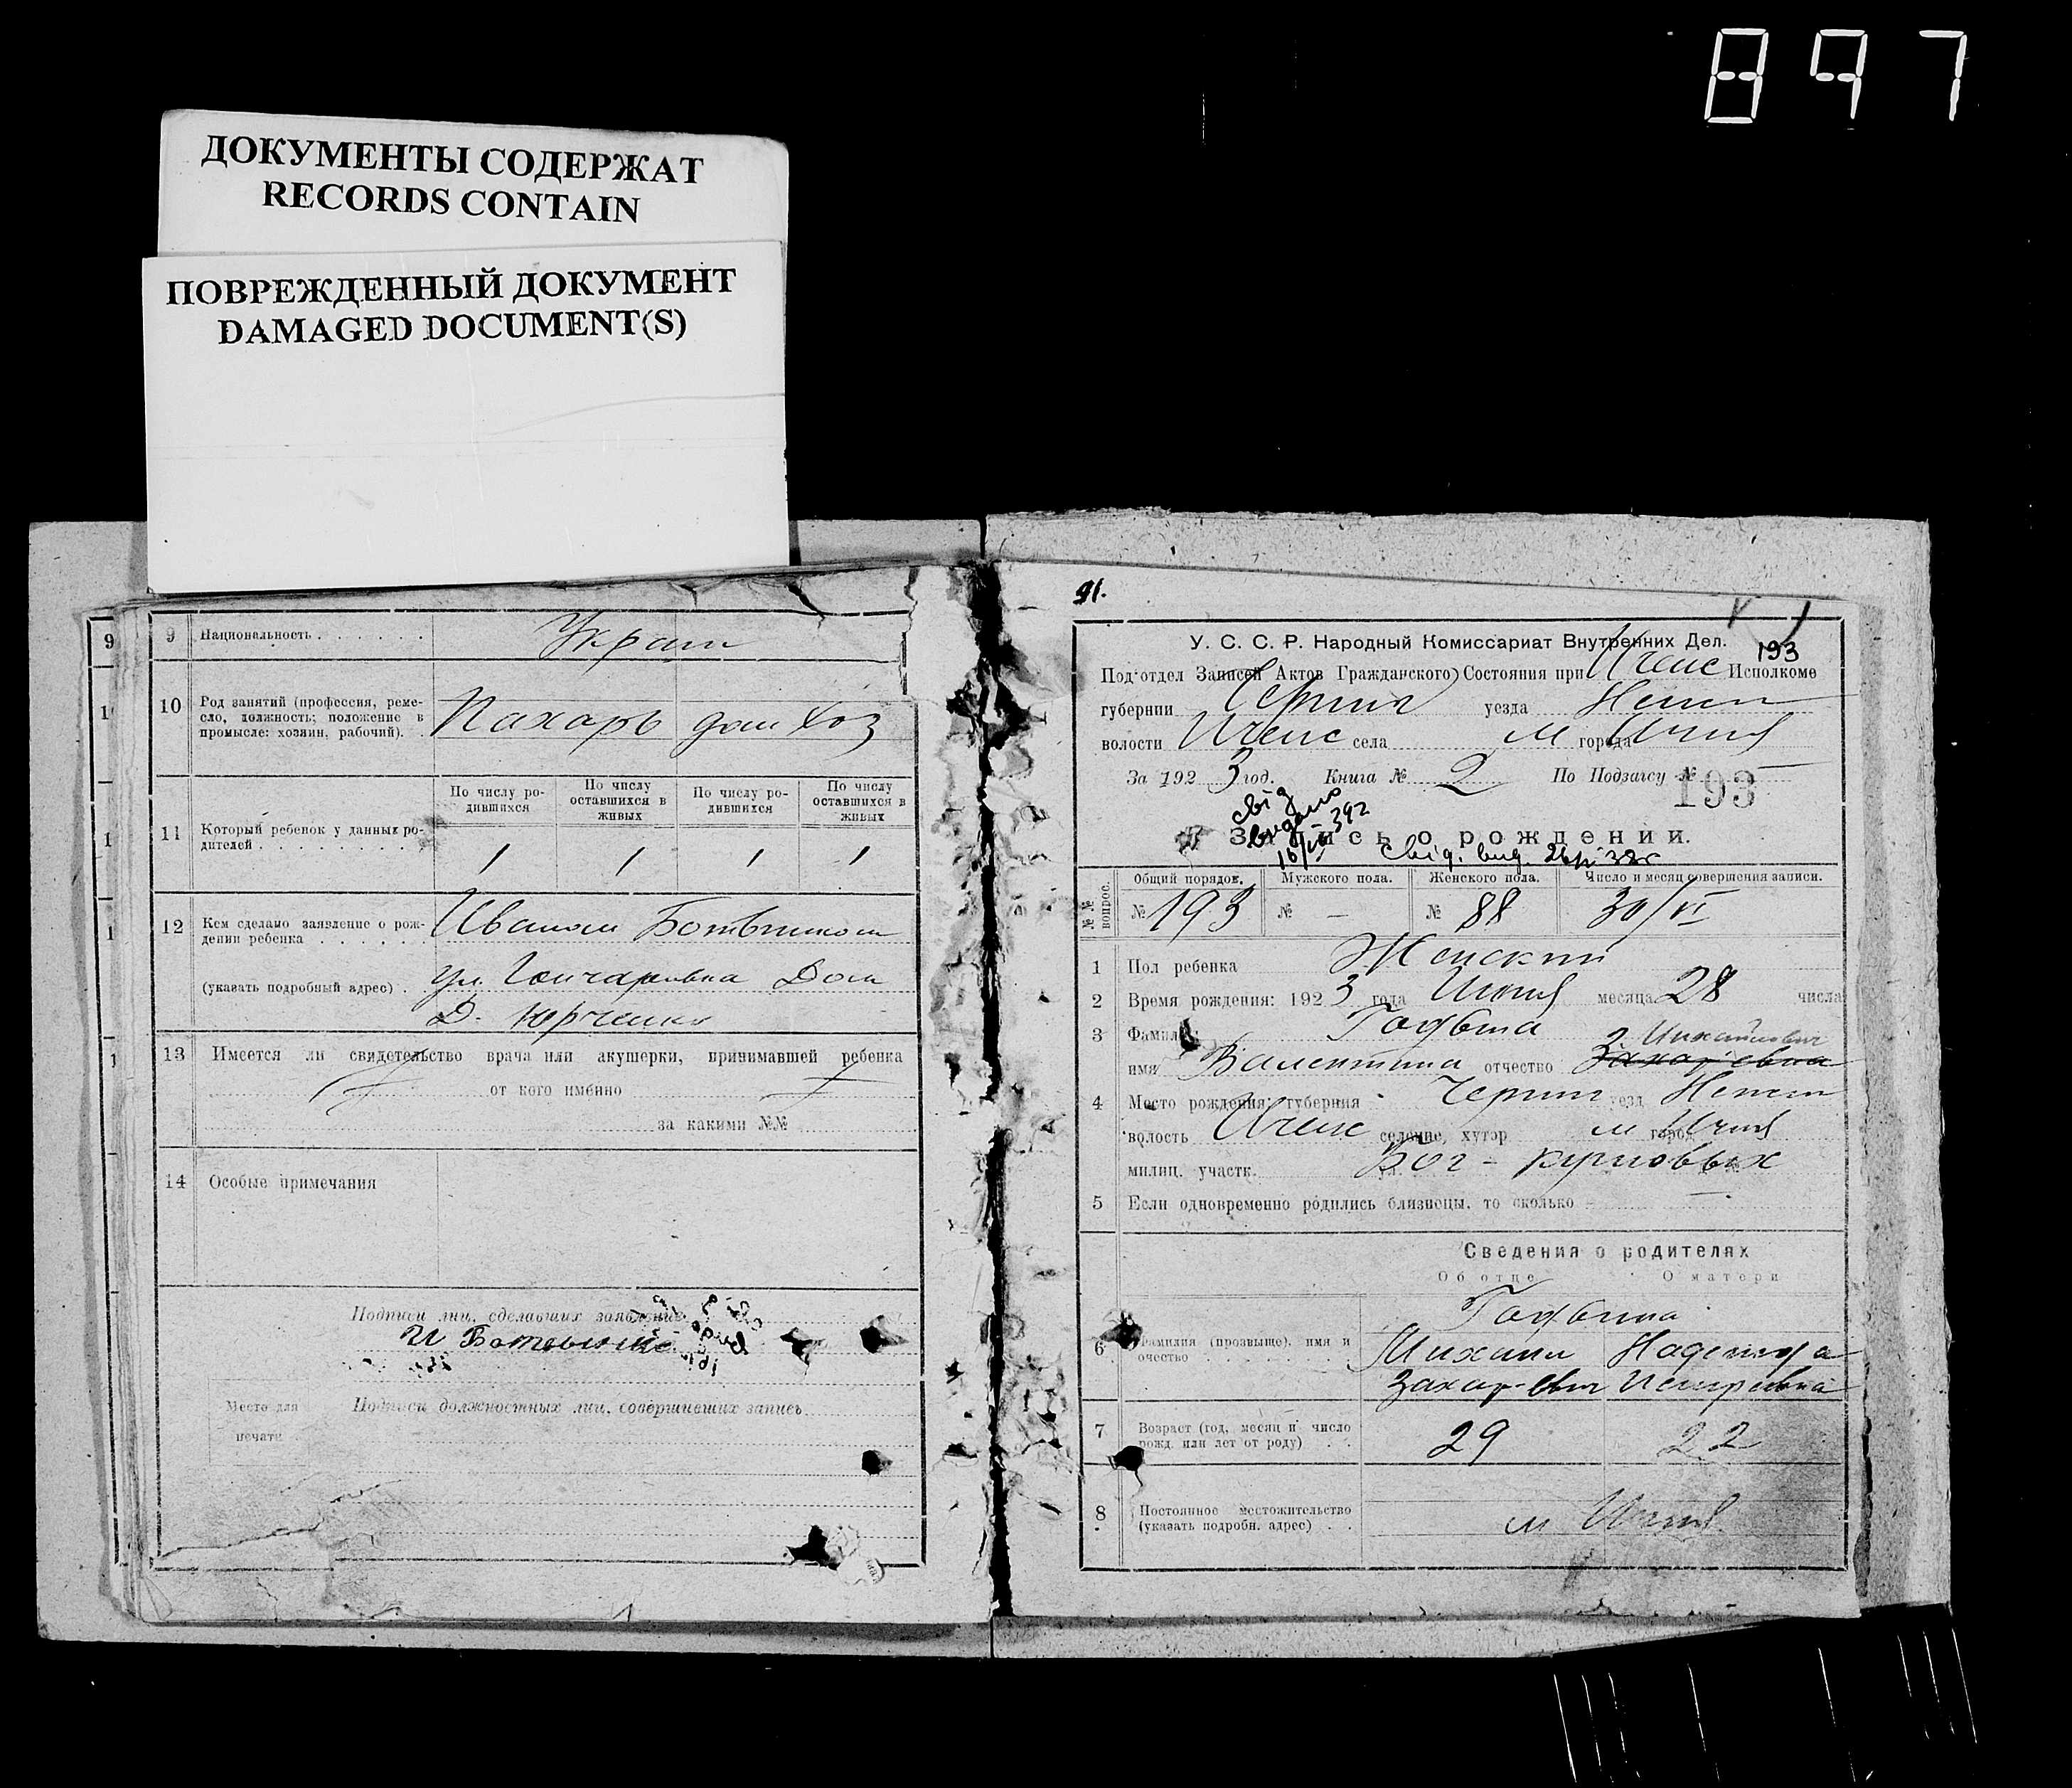 897
ДОКУМЕНТЫ СОДЕРЖАТ
RECORDS CONTAIN
ПОВРЕЖДЕННЫЙ ДОКУМЕНТ
DAMAGED DOCUMENT(S)
9 Национальность . . . . . . Украин
10 Род занятий (профессия, реме-
сло, должность; положение в
промысле: хозяин, рабочий). Пахарь дом хоз
По числу ро-
дившихся
По числу
оставшихся в
живых
По числу ро-
дившихся
По числу
оставшихся в
живых
11 Который ребенок у данных ро-
дителей . . . . . . . . . 1 1 1 1
12 Кем сделано заявление о рож-
дении ребенка . . . . . . Иваном
(указать подробный адрес) . ул. Гончаровка Дом
Д. Юрченко
13 Имеется ли свидетельство врача или акушерки, принимавшей ребенка
от кого именно
за какими №№
14 Особые примечания
Подписи лиц, сделавших заявление
И
Место для
печати
Подписи должностных лиц, совершивших запись
91.
193
У. С. С. Р. Народный Комиссариат Внутренних Дел.
Под'отдел Записей Актов Гражданского Состояния при Иченс Исполкоме
губернии уезда Нежин
волости Иченс села м города Ичня
За 1923 год. Книга № 2 По Подзагсу № 193
Запись о рождении.
№№ вопрос.
Общий порядок.
Мужского пола.
Женского пола.
Число и месяц совершения записи.
№ 193 № — № 88 30/VI
1 Пол ребенка Женский
2 Время рождения: 1923 года Июня месяца 28 числа
3 Фамилия
имя Валентина отчество Захарьевна
4 Место рождения: губерния Черниг уезд Нежин
волость Иченс селение, хутор м город Ичня
милиц. участк. ул.
5 Если одновременно родились близнецы, то сколько —
Сведения о родителях
Об отце О матери
6 Фамилия (прозвище), имя и
отчество . . . . . . . Михаил Надежда
Захарьевич Петровна
7 Возраст (год, месяц и число
рожд. или лет от роду) . . 29 22
8 Постоянное местожительство
(указать подробн. адрес) . . м Ичня